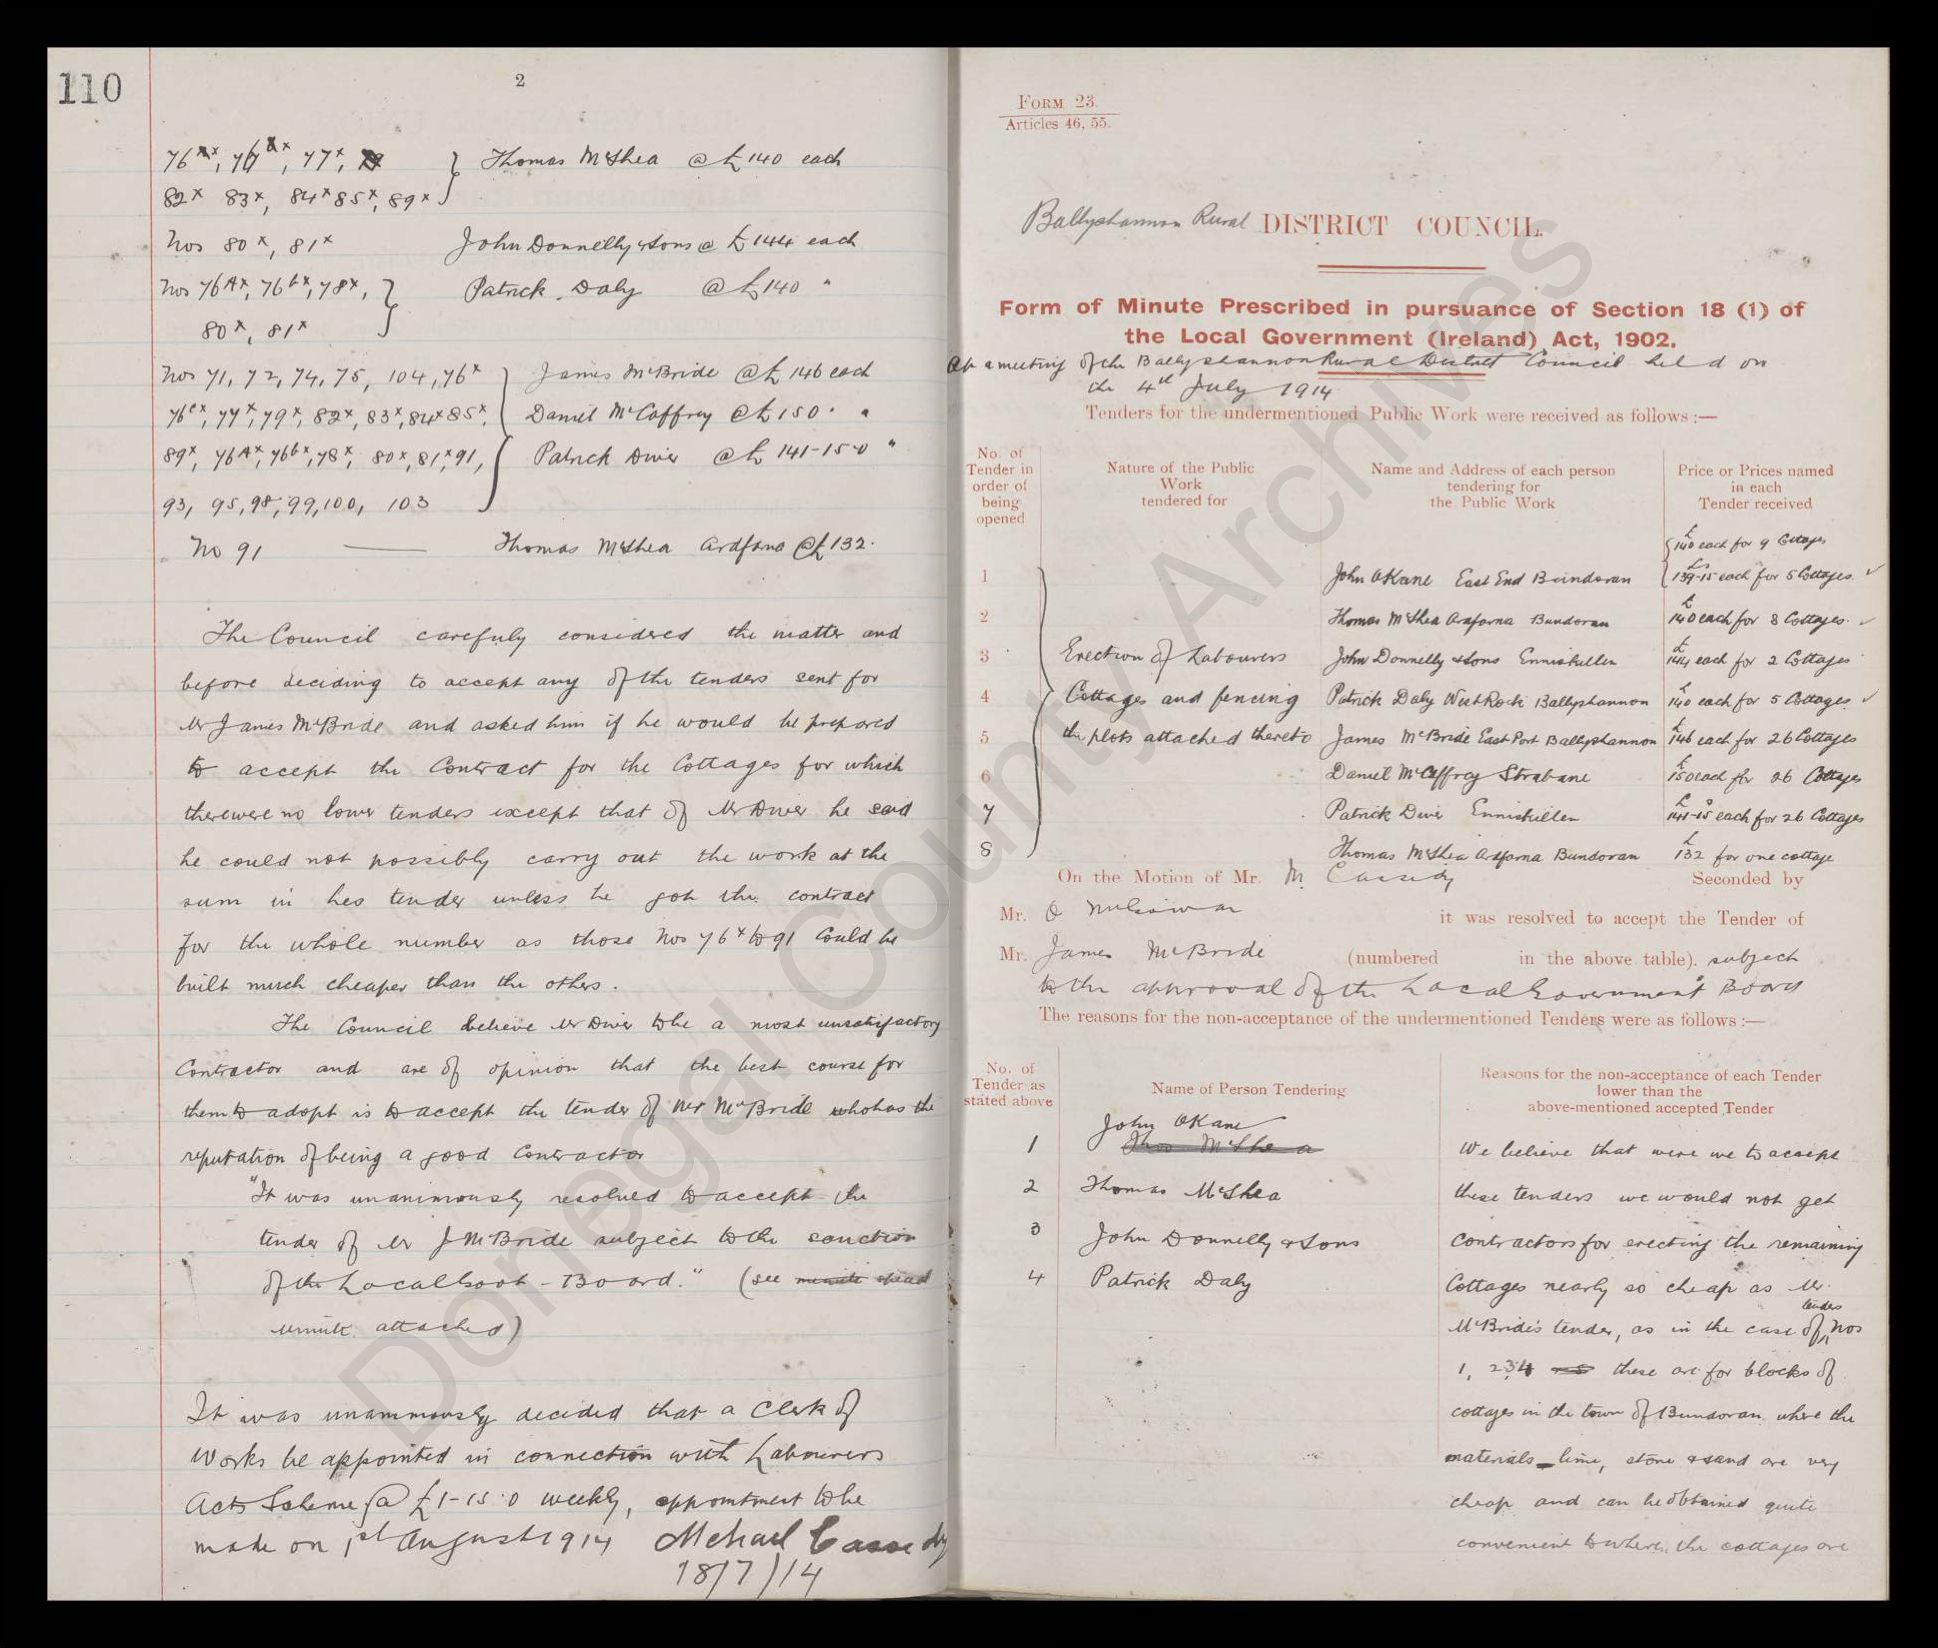 110
2
76ˣˣ, 76ᴮˣ, 77ˣ,
82ˣ 83ˣ, 84ˣ 85ˣ, 89ˣ } Thomas McShea @ £140 each
Nos 80ˣ, 81ˣ John Donnelly & Sons @ £144 each
Nos 76ᴬˣ, 76ᵇˣ, 78ˣ, } Patrick Daly @ £140 "
80ˣ, 81ˣ
Nos 71, 72, 74, 75, 104, 76ˣ James McBride @ £146 each
76ᶜˣ, 77ˣ, 79ˣ, 82ˣ, 83ˣ, 84ˣ 85ˣ, Daniel McCaffrey @ £150 "
89ˣ, 76ᴬˣ, 76ᵇˣ, 78ˣ, 80ˣ, 81ˣ 91, Patrick Diver @ £141-15-0 "
93, 95, 98, 99, 100, 103
No 91 — Thomas McShea Ardfarna @ £132.
The Council carefuly considered the matter and
before deciding to accept any of the tenders sent for
Mr James McBride and asked him if he would be prepared
to accept the Contract for the Cottages for which
there were no lower tenders except that of Mr Diver he said
he could not possibly carry out the work at the
sum in his tender unless he got the contract
for the whole number as those Nos 76ˣ to 91 could be
built much cheaper than the others.
The Council believe Mr Diver to be a most unsatisfactory
Contractor and are of opinion that the best course for
them to adopt is to accept the tender of Mr McBride who has the
reputation of being a good Contractor
"It was unanimously resolved to accept the
tender of Mr J McBride subject to the sanction
of the Local Govt - Board." (see minute
minute attached)
It was unanimously decided that a Clerk of
Works be appointed in connection with Labourers
Acts Scheme @ £1-15.0 weekly, appointment to be
made on 1st August 1914 Michael Cassidy
18/7/14
FORM 23.
Articles 46, 55.
Ballyshannon Rural DISTRICT COUNCIL.
Form of Minute Prescribed in pursuance of Section 18 (1) of
the Local Government (Ireland) Act, 1902.
At a meeting of the Ballyshannon Rural District Council held on
the 4th July 1914
Tenders for the undermentioned Public Work were received as follows :—
No. of Tender in order of being opened
Nature of the Public Work tendered for
Name and Address of each person tendering for the Public Work
Price or Prices named in each Tender received
£140 each for 9 Cottages
1 John OKane East End Bundoran £139-15 each for 5 Cottages.
2 Thomas McShea Ardfarna Bundoran £140 each for 8 Cottages.
3 Erection of Labourers John Donnelly & Sons Enniskillen £144 each for 2 Cottages
4 Cottages and fencing Patrick Daly West Rock Ballyshannon £140 each for 5 Cottages
5 the plots attached thereto James McBride East Port Ballyshannon £146 each for 26 Cottages
6 Daniel McCaffrey Strabane £150 each for 26 Cottages
7 Patrick Diver Enniskillen £141-15 each for 26 Cottages
8 Thomas McShea Ardfarna Bundoran £132 for one cottage
On the Motion of Mr. M Cassidy Seconded by
Mr. it was resolved to accept the Tender of
Mr. James McBride (numbered in the above table). subject
to the approval of the Local Government Board
The reasons for the non-acceptance of the undermentioned Tenders were as follows :—
No. of Tender as stated above
Name of Person Tendering
Reasons for the non-acceptance of each Tender lower than the above-mentioned accepted Tender
John OKane
1 Thos McShea We believe that were we to accept
2 Thomas McShea these tenders we would not get
3 John Donnelly & Sons contractors for erecting the remaining
4 Patrick Daly Cottages nearly so cheap as Mr.
McBride's tender, as in the case of tenders Nos
1, 2 3 4 these are for blocks of
cottages in the town of Bundoran where the
materials - lime, stone & sand are very
cheap and can be obtained quite
convenient to where the cottages are
Donegal County Archives